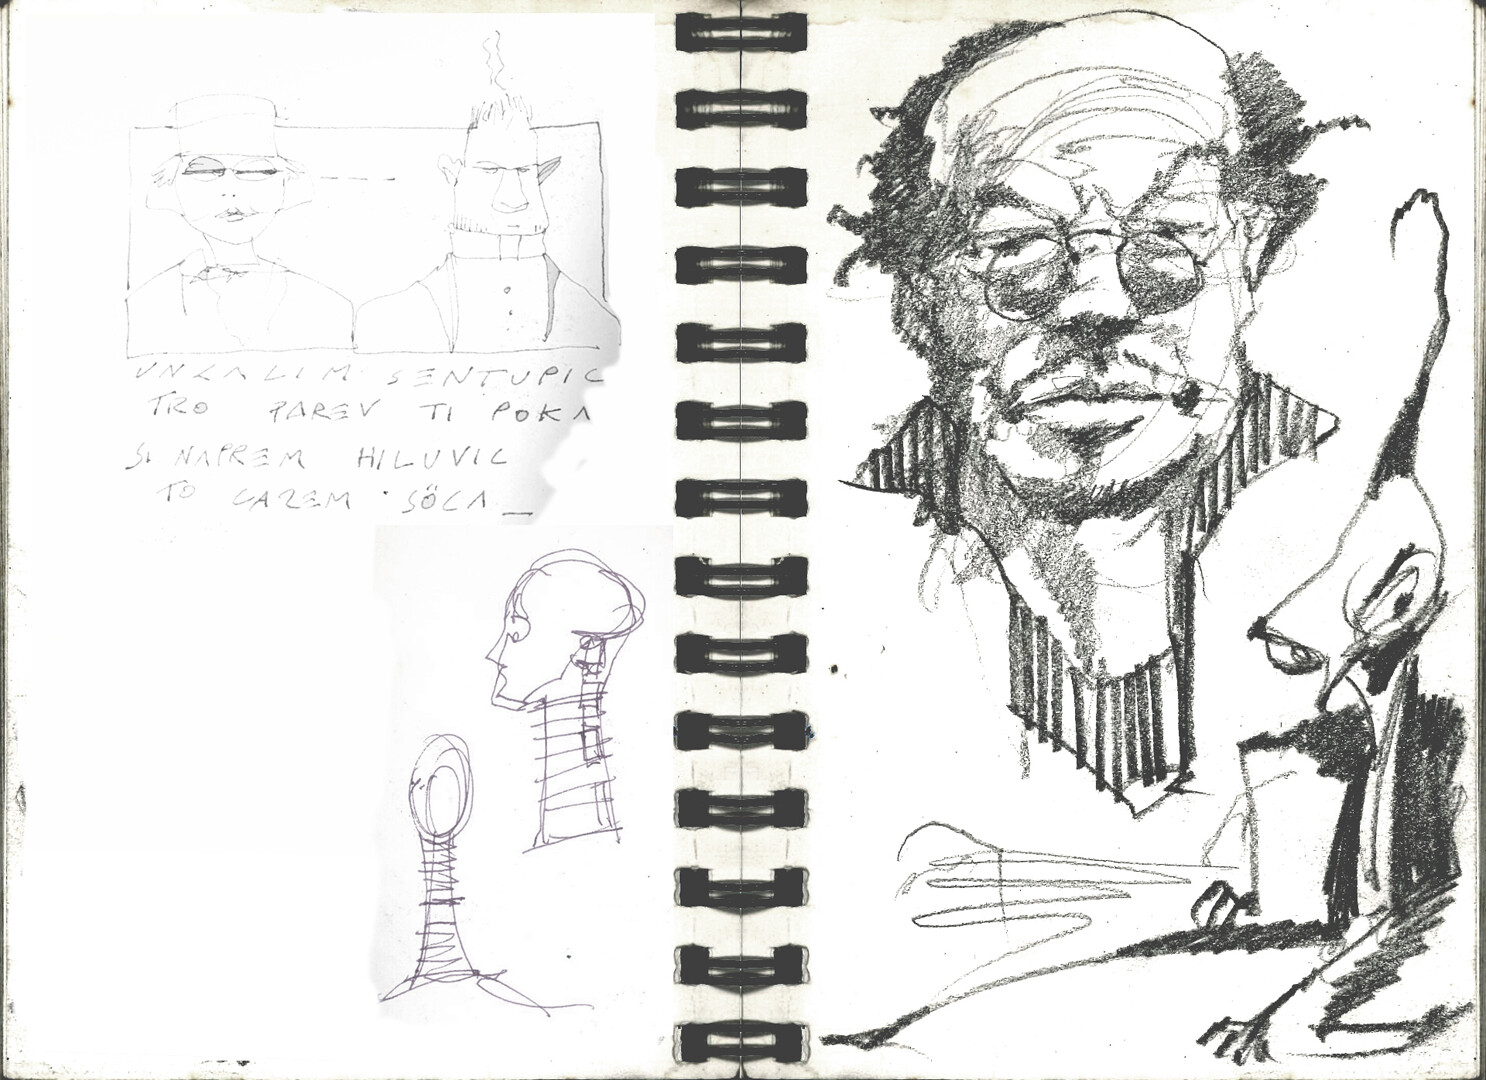 UNCALIM SENTUPIC
TRO PAREV TI POKA
SI NAPREM HILUVIC
TO CAZEM SÖCA_